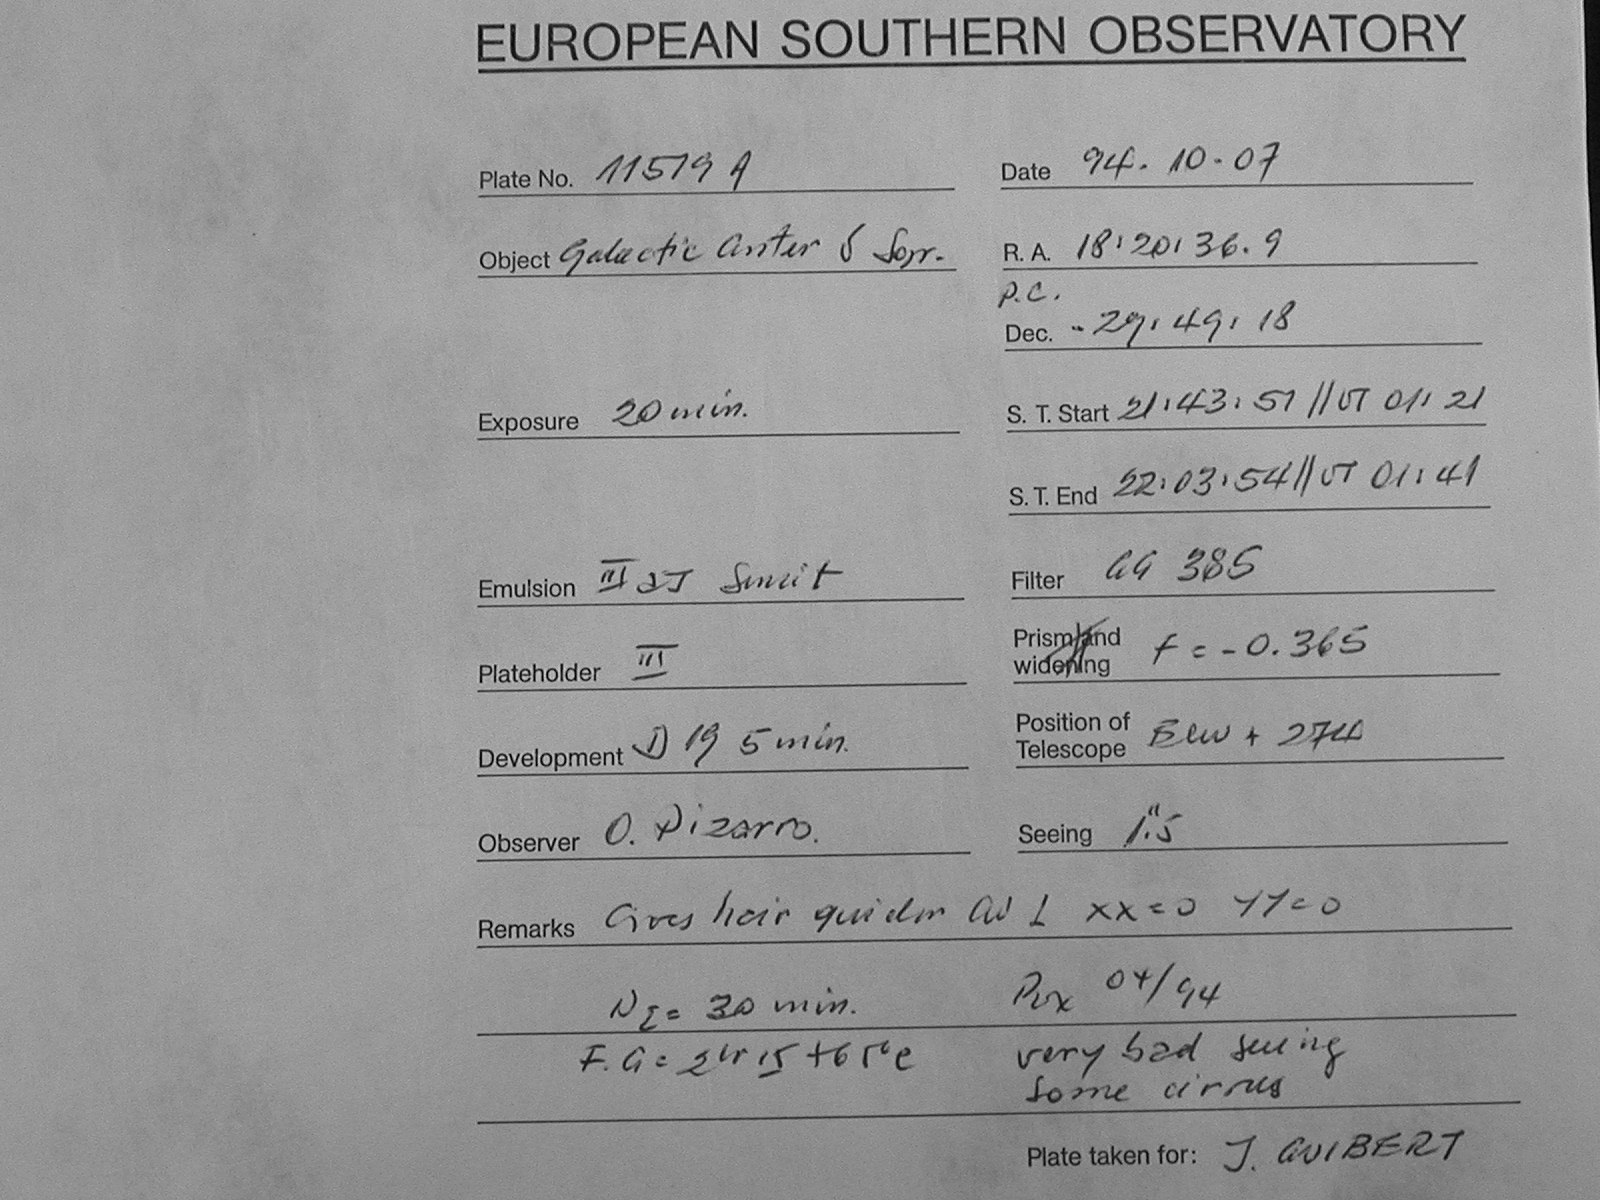 EUROPEAN SOUTHERN OBSERVATORY
Plate No. 11579 A
Date 94.10-07
Object Galactic Center
R. A. 18:20:36.9
P.C.
Dec. -29:49:18
Exposure 20 min.
S. T. Start 21:43:51 // UT 01:21
S. T. End 22:03:54 // UT 01:41
Emulsion III aJ
Filter GG 385
Plateholder III
Prism and widening f = -0.365
Development D 19 5 min.
Position of Telescope
Observer O. Pizarro.
Seeing 1.″5
Remarks xx=0 YY=0
= 30 min. 04/94
F.G = very bad seeing
some cirrus
Plate taken for: J. GUIBERT